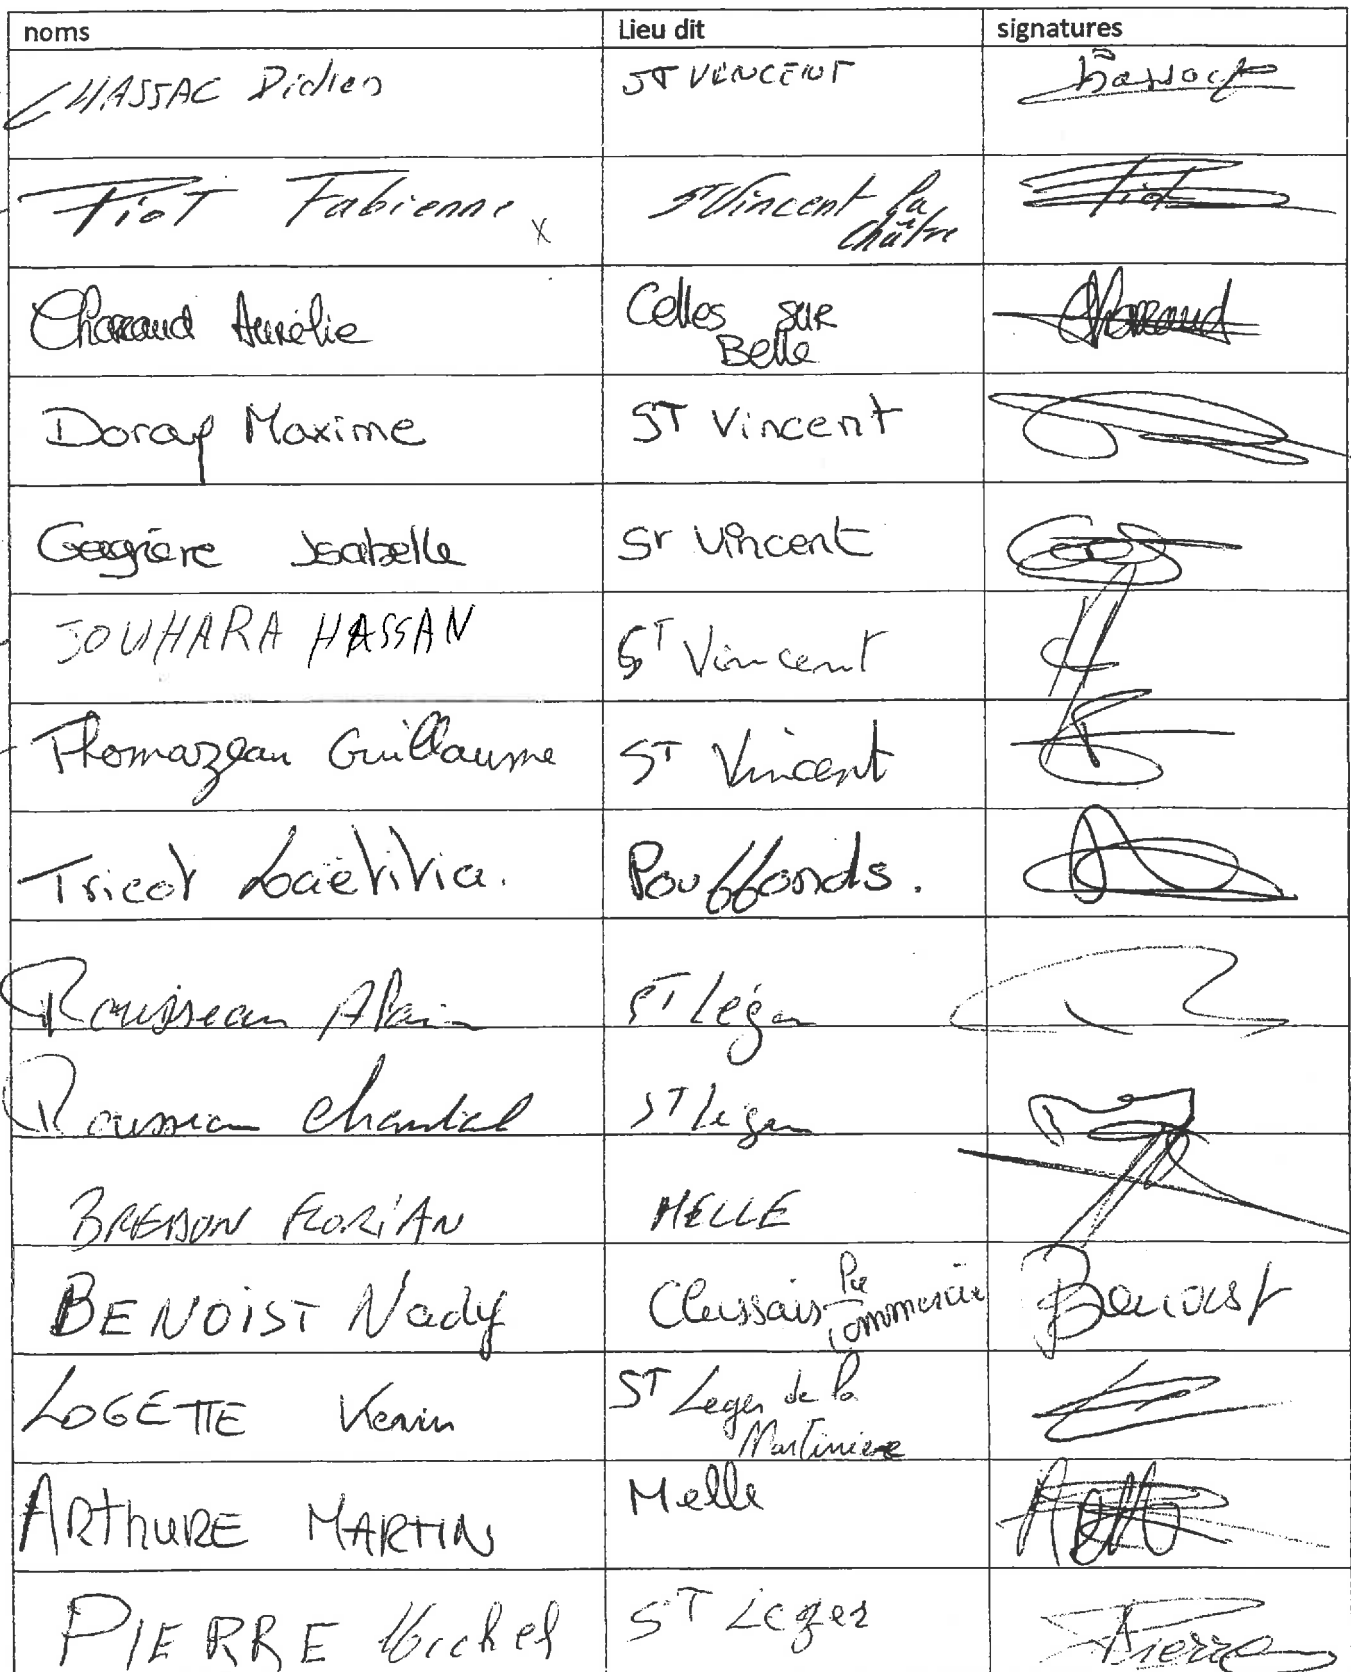 noms Lieu dit signatures
CHASSAC Didier ST VENCENT
Piot Fabienne x St Vincent la Châtre Piot
Charraud Aurélie Celles sur Belle Charraud
Doray Maxime ST Vincent
Gagnière Isabelle St Vincent
JOUHARA HASSAN ST Vincent
Thomazeau Guillaume ST Vincent
Tricot Laëtitia. Pouffonds.
Rousseau Alain ST Léger
Rousseau Chantal ST Leger
FLORIAN MELLE
BENOIST Nady Clussais la Pommeraie Benoist
LOGETTE Kevin ST Leger de la Martiniere
ARThURE MARTIN Melle
PIERRE Michel ST Leger Pierre